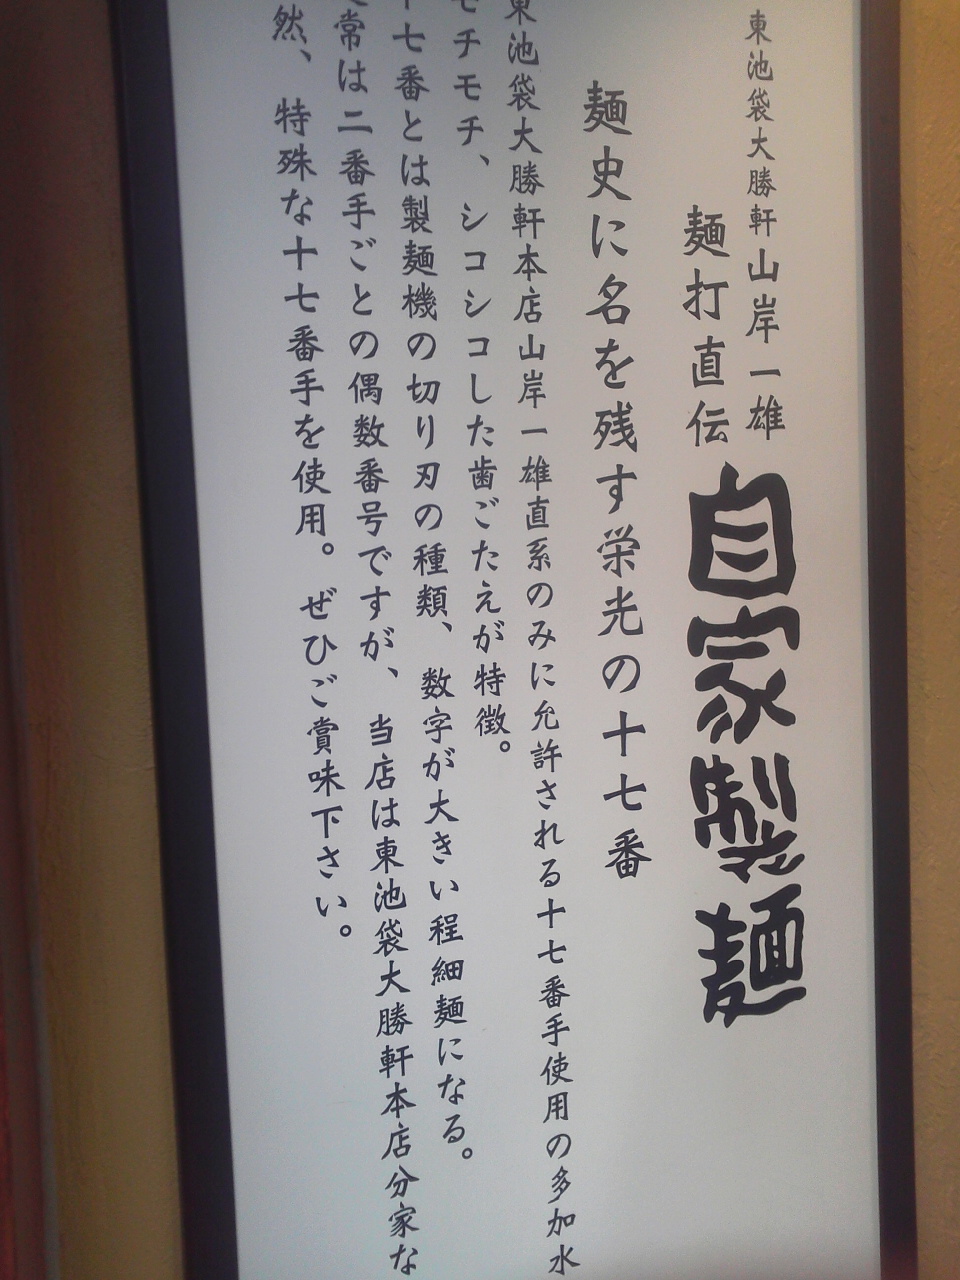 東池袋大勝軒山岸一雄
麺打直伝
自家製麺
麺史に名を残す栄光の十七番
東池袋大勝軒本店山岸一雄直系のみに允許される十七番手使用の多加水
モチモチ、シコシコした歯ごたえが特徴。
十七番とは製麺機の切り刃の種類、数字が大きい程細麺になる。
常は二番手ごとの偶数番号ですが、当店は東池袋大勝軒本店分家な
然、特殊な十七番手を使用。ぜひご賞味下さい。